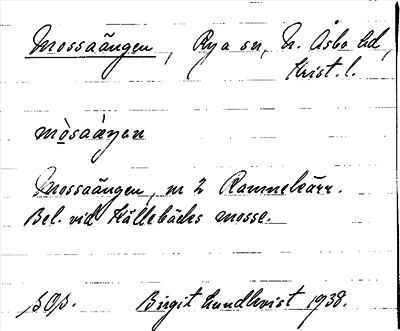 Mossaängen, Rya sn, N. Åsbo hd,
Krist. l.
mòsaáŋen
Mossaängen, nr 2 Rammekärr.
Bel. vid Källebäcks mosse.
Birgit Lundkvist 1938.